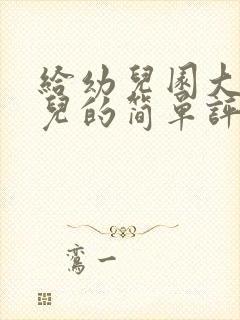 給幼兒園大
兒的簡單評
鸞一